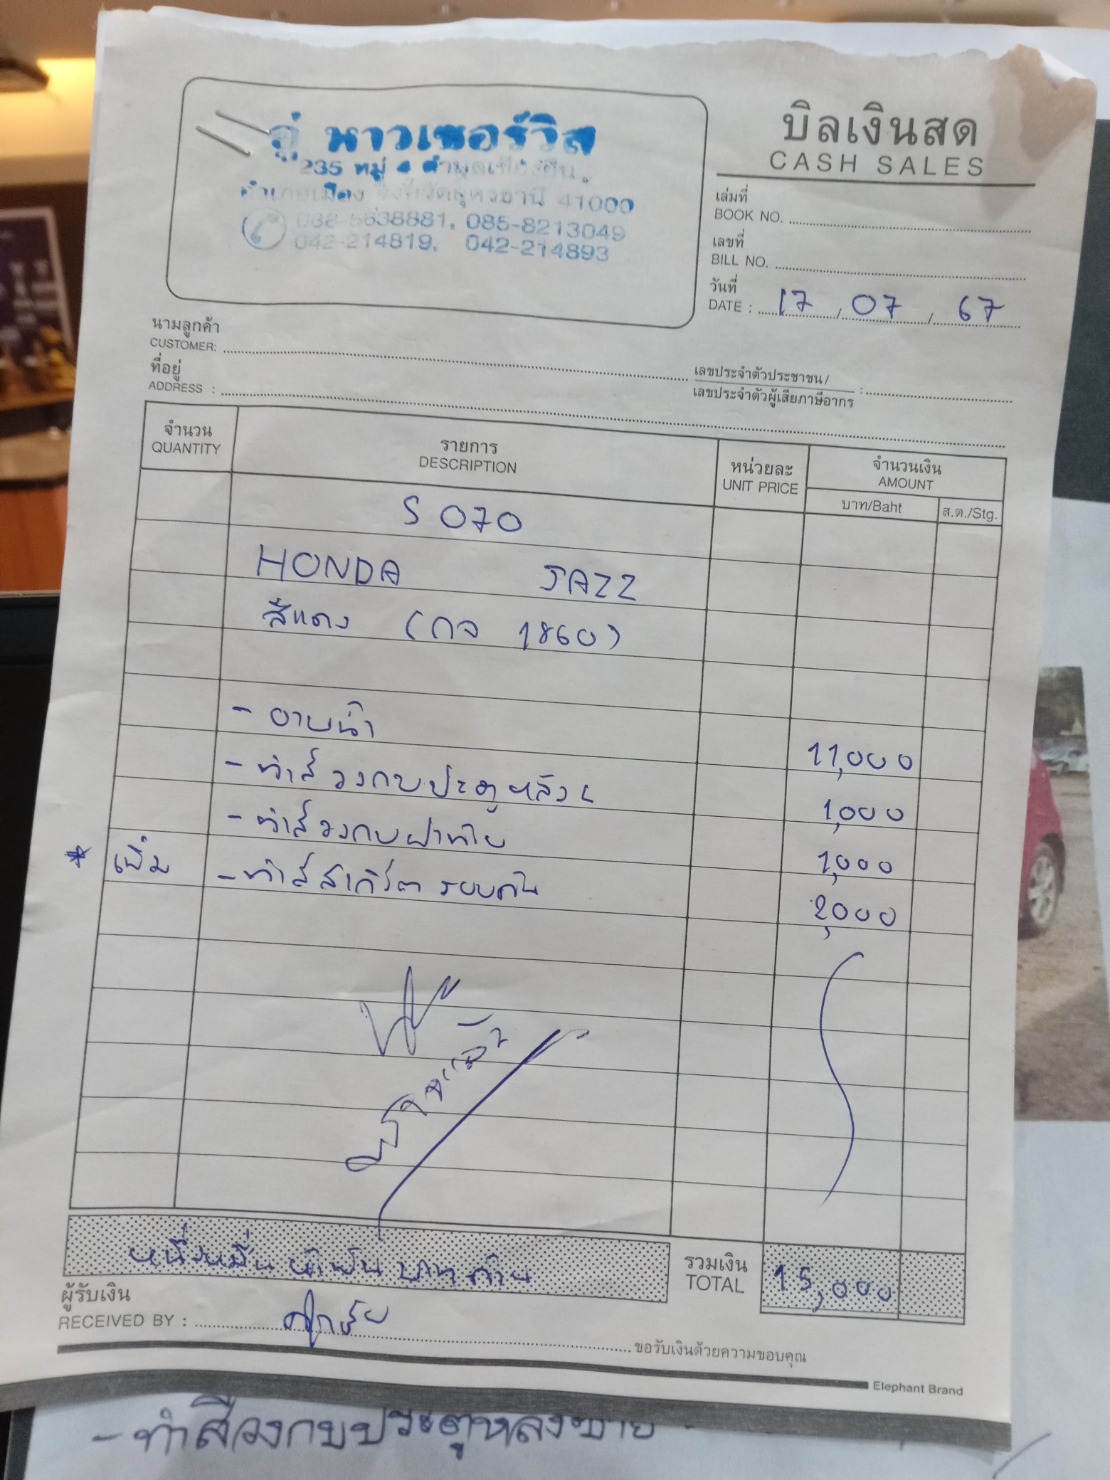 อู่ หาวเซอร์วิส
235 หมู่ 4 ตำบลเชียงยืน
อำเภอเมือง จังหวัดอุดรธานี 41000
5638881, 085-8213049
042-214819, 042-214893
บิลเงินสด
CASH SALES
เล่มที่
BOOK NO.
เลขที่
BILL NO.
วันที่
DATE : 17 / 07 / 67
นามลูกค้า
CUSTOMER:
ที่อยู่
ADDRESS :
เลขประจำตัวประชาชน/
เลขประจำตัวผู้เสียภาษีอากร :
จำนวน รายการ หน่วยละ จำนวนเงิน
QUANTITY DESCRIPTION UNIT PRICE AMOUNT
บาท/Baht ส.ต./Stg.
S 070
HONDA JAZZ
สีแดง (กจ 1860)
- อาบน้ำ 11,000
- ทำสีวงกบประตูหลัง L 1,000
- ทำสีวงกบฝาท้าย 1,000
* เพิ่ม - ทำสีสเกิร์ตรอบคัน 2,000
หนึ่งหมื่นห้าพันบาทถ้วน รวมเงิน
TOTAL 15,000
ผู้รับเงิน
RECEIVED BY :
ขอรับเงินด้วยความขอบคุณ
Elephant Brand
- ทำสีวงกบประตูหลังซ้าย